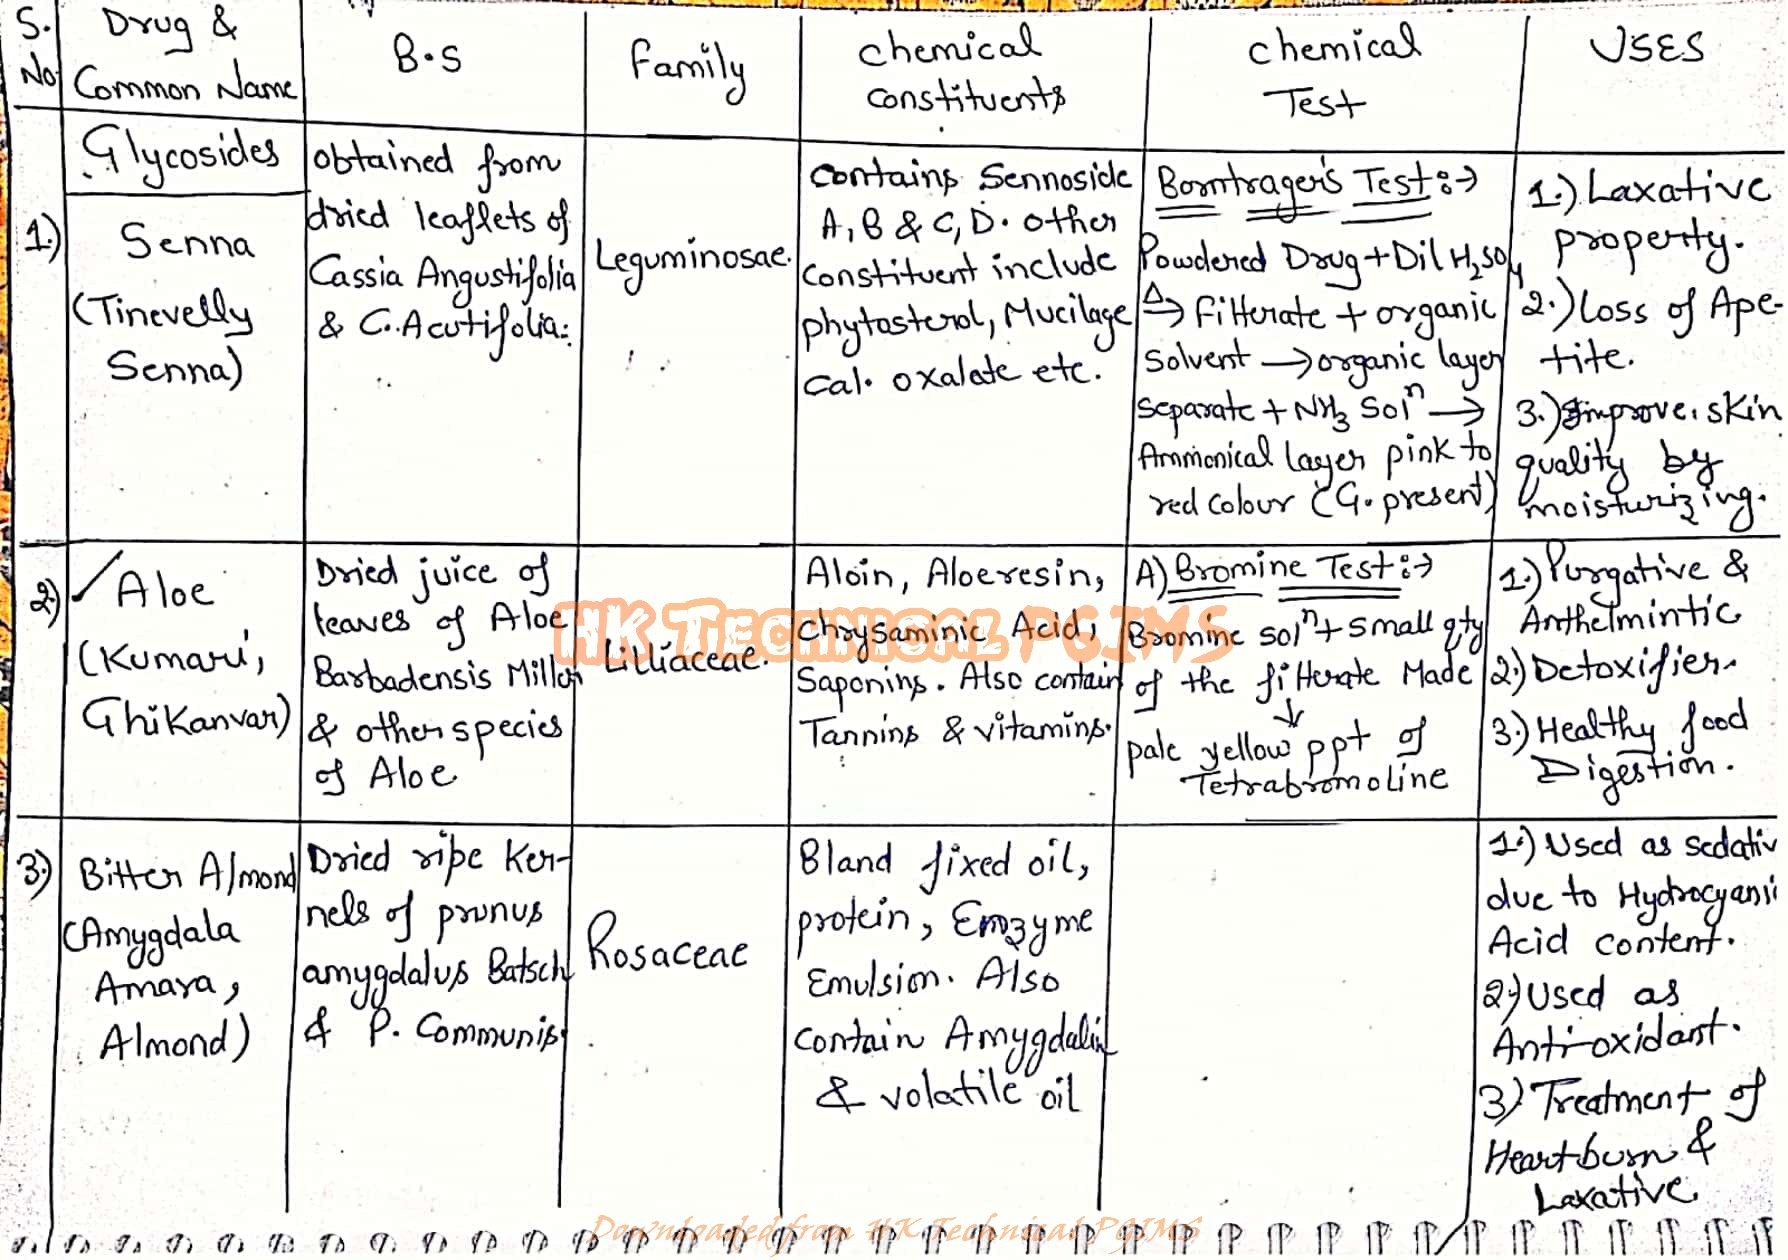 S.No
Drug &
Common Name
B.S
Family
Chemical
Constituents
Chemical
Test
USES
Glycosides
1.)
Senna
(Tinevelly
Senna)
obtained from
dried leaflets of
Cassia Angustifolia
& C. Acutifolia.
Leguminosae.
Contains Sennoside
A, B & C, D. other
Constituent include
phytosterol, Mucilage
Cal. oxalate etc.
Borntrager's Test:→
Powdered Drug + Dil H2SO4
△→ Filterate + organic
Solvent → organic layer
Separate + NH3 Solⁿ →
Ammonical layer pink to
red colour (G. present)
1.) Laxative
property.
2.) Loss of Ape-
tite.
3.) Improve skin
quality by
moisturizing.
2)
Aloe
(Kumari,
Ghikanvar)
Dried juice of
leaves of Aloe
Barbadensis Miller
& other species
of Aloe
Lilliaceae.
Aloin, Aloeresin,
Chrysaminic Acid,
Saponins. Also contain
Tannins & vitamins.
A) Bromine Test:→
Bromine solⁿ + small qty
of the filterate Made
↓
pale yellow ppt of
Tetrabromoline
1.) Purgative &
Anthelmintic
2.) Detoxifier.
3.) Healthy food
Digestion.
3)
Bitter Almond
(Amygdala
Amara,
Almond)
Dried ripe Ker-
nels of prunus
amygdalus Batsch
& P. Communis.
Rosaceae
Bland fixed oil,
protein, Enzyme
Emulsion. Also
contain Amygdalin
& volatile oil
1.) Used as sedativ
due to Hydrocyani
Acid content.
2) Used as
Anti-oxidant.
3) Treatment of
Heartburn &
Laxative
HK Technical PGIMS
Downloaded from HK Technical PGIMS